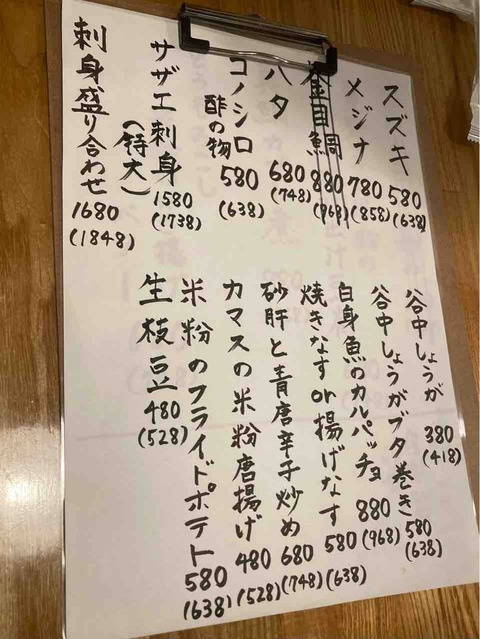 スズキ 580 (638)
メジナ 780 (858)
金目鯛 880 (968)
ハタ 680 (748)
コノシロ酢の物 580 (638)
サザエ刺身(特大) 1580 (1738)
刺身盛り合わせ 1680 (1848)
谷中しょうが 380 (418)
谷中しょうがブタ巻き 580 (638)
白身魚のカルパッチョ 880 (968)
焼きなすor揚げなす 580 (638)
砂肝と青唐辛子炒め 680 (748)
カマスの米粉唐揚げ 480 (528)
米粉のフライドポテト 580 (638)
生枝豆 480 (528)